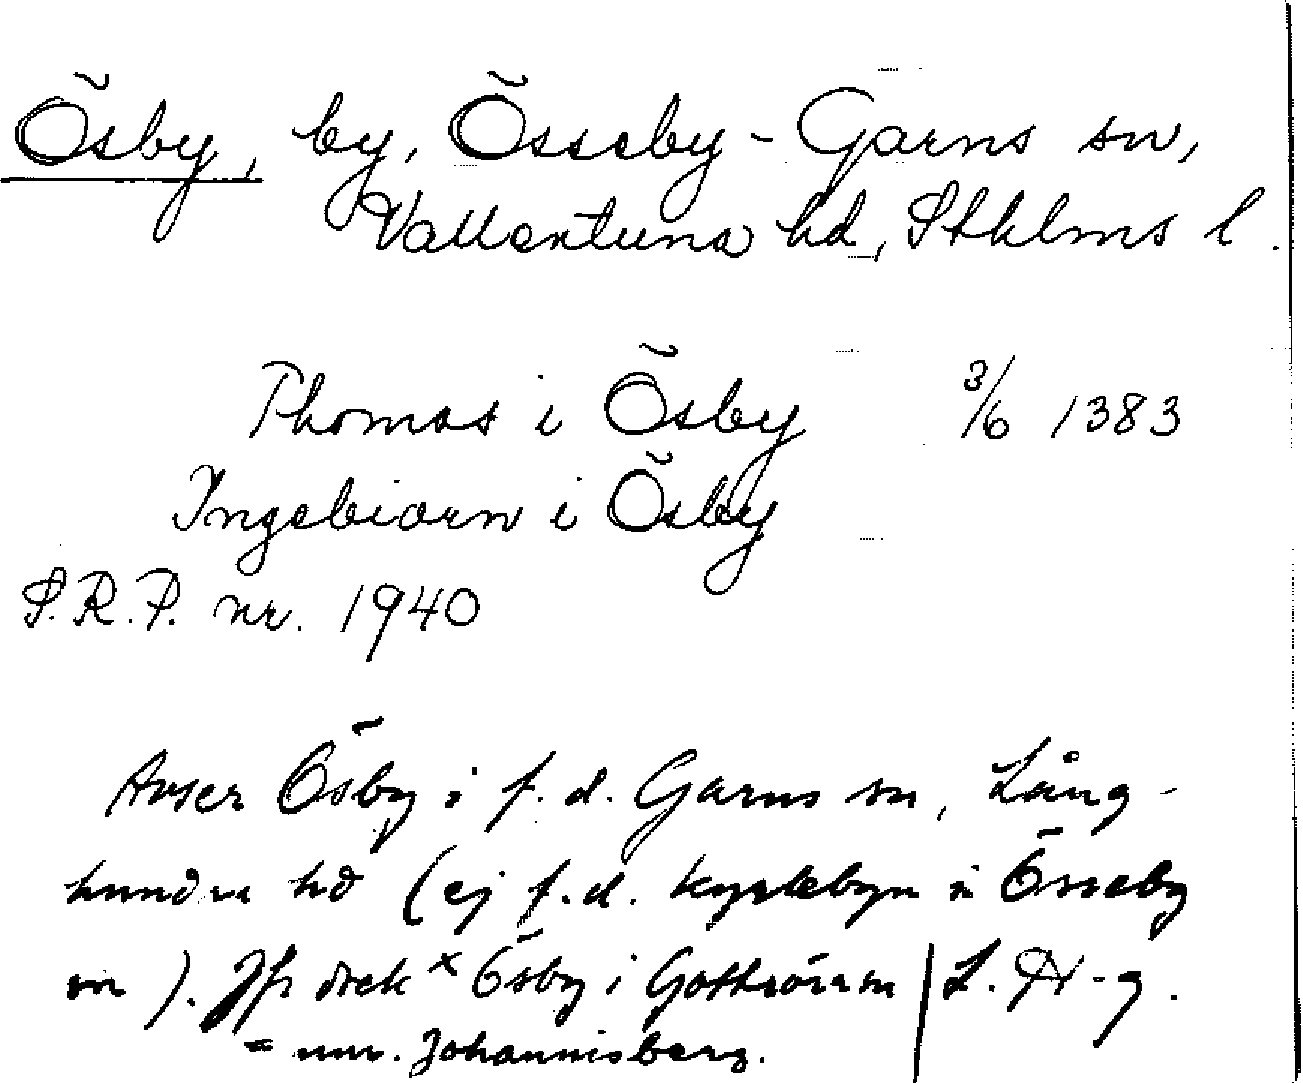 Ösby, by, Össeby-Garns sn,
Vallentuna hd, Sthlms l.
Thomas i Ösby 3/6 1383
Ingebiorn i Ösby
S.R.P. nr. 1940
Avser Ösby i f.d. Garns sn, Lång-
hundra hd (ej f.d. kyrkebyn i Össeby
sn). Jfr dock × Ösby i Gottröra sn | L. H-g.
= nuv. Johannisberg.